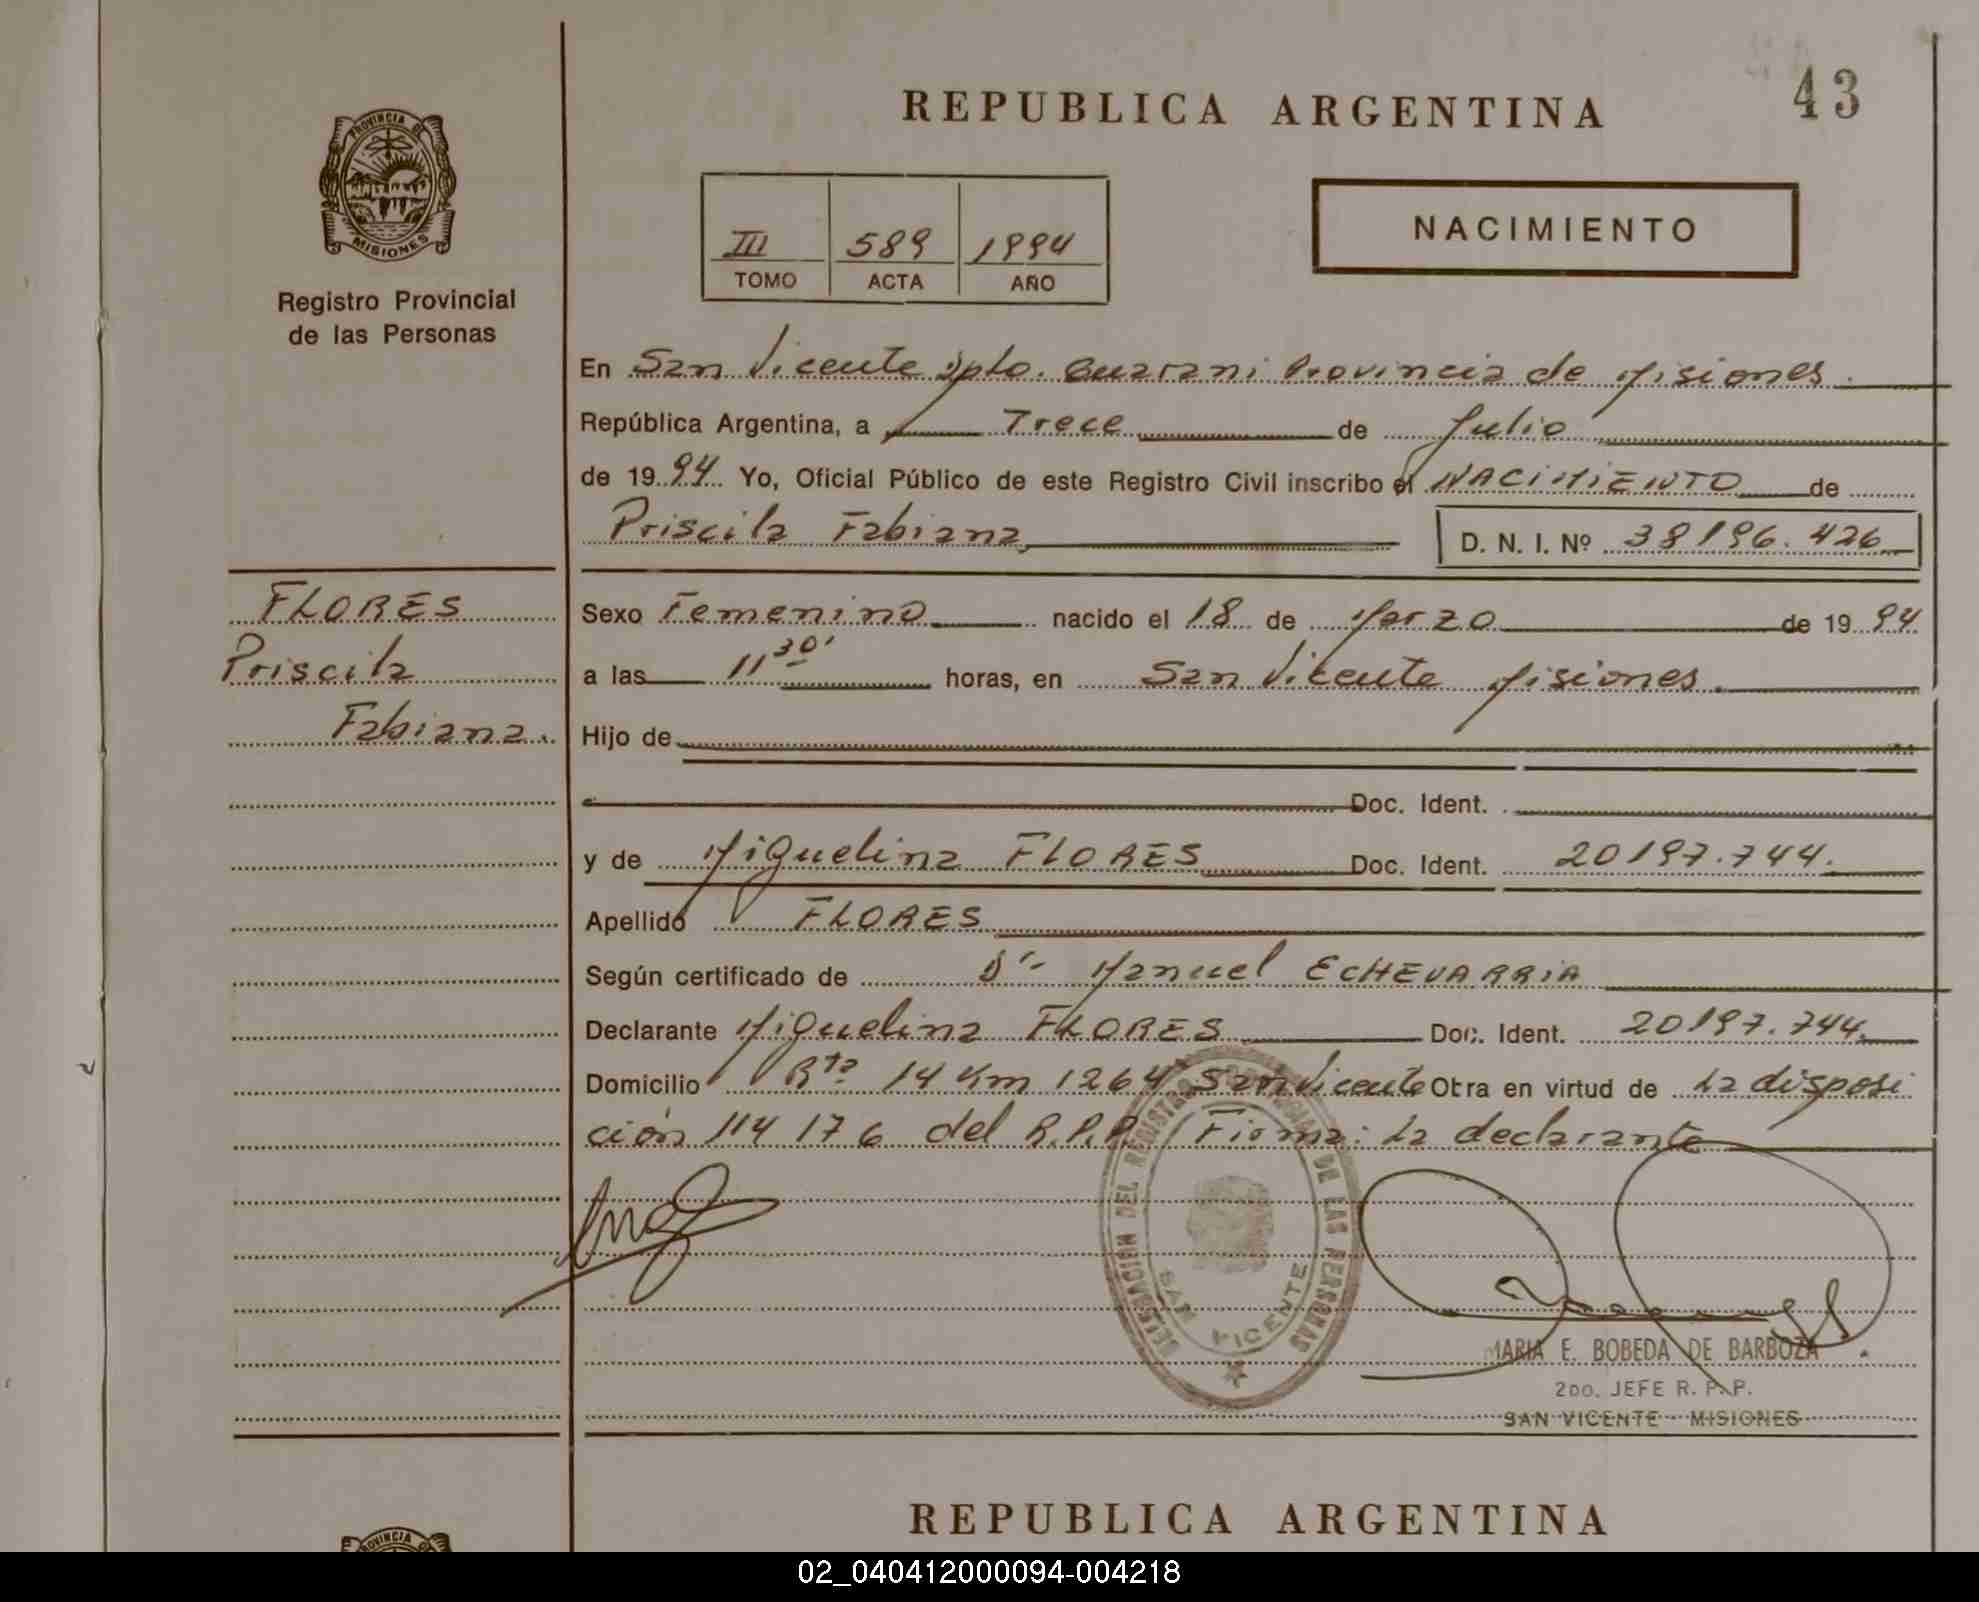 43
REPUBLICA ARGENTINA
PROVINCIA DE
MISIONES
Registro Provincial
de las Personas
NACIMIENTO
III 589 1994
TOMO ACTA AÑO
En San Vicente Dpto. Guarani Provincia de Misiones.
República Argentina, a Trece de Julio
de 1994 Yo, Oficial Público de este Registro Civil inscribo el NACIMIENTO de
Priscila Fabiana D. N. I. Nº 38196.426
FLORES
Priscila
Fabiana.
Sexo Femenino nacido el 18 de Marzo de 1994
a las 11 30' horas, en San Vicente Misiones.
Hijo de
Doc. Ident.
y de Miguelina FLORES Doc. Ident. 20197.744.
Apellido FLORES
Según certificado de Dr Manuel ECHEVARRIA
Declarante Miguelina FLORES Doc. Ident. 20197.744.
Domicilio Rta 14 Km 1264 San Vicente Otra en virtud de La disposi
ción 114 176 del R.P.P. Firma: La declarante
DELEGACION DEL REGISTRO PROVINCIAL DE LAS PERSONAS
SAN VICENTE
MARIA E. BOBEDA DE BARBOZA
2DO. JEFE R. P. P.
SAN VICENTE - MISIONES
REPUBLICA ARGENTINA
PROVINCIA
02_040412000094-004218